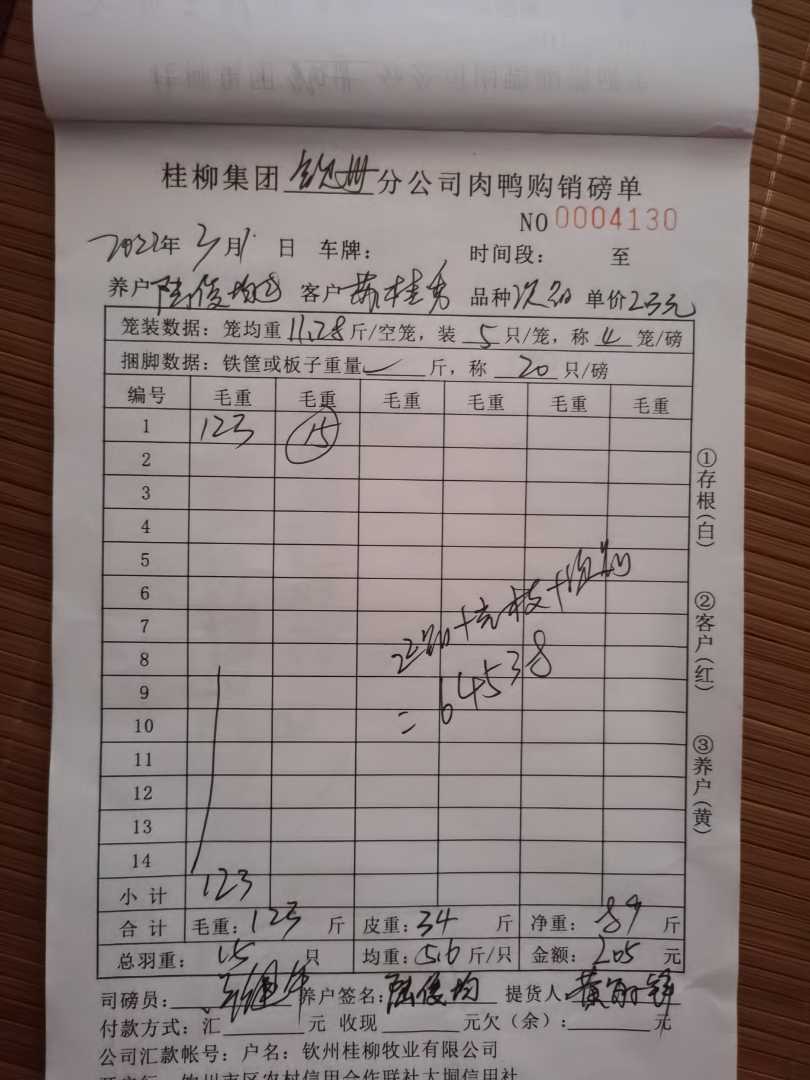 桂柳集团钦州分公司肉鸭购销磅单
NO 0004130
2022年3月1日 车牌： 时间段： 至
养户陆俊均 客户苏桂秀 品种次 单价2.3元
笼装数据：笼均重11.28斤/空笼，装5只/笼，称4笼/磅
捆脚数据：铁筐或板子重量 斤，称20只/磅
编号 毛重 毛重 毛重 毛重 毛重 毛重
1 123 15
2
3
4
5
6
7
8
9
10
11
12
13
14
=64538
小计 123
合计 毛重：123斤 皮重：34斤 净重：89斤
总羽重：15只 均重：5.6斤/只 金额：205元
司磅员： 养户签名：陆俊均 提货人：黄
付款方式：汇 元 收现 元欠（余）： 元
公司汇款帐号：户名：钦州桂柳牧业有限公司
开户行：钦州市区农村信用合作联社大垌信用社
①存根（白）
②客户（红）
③养户（黄）